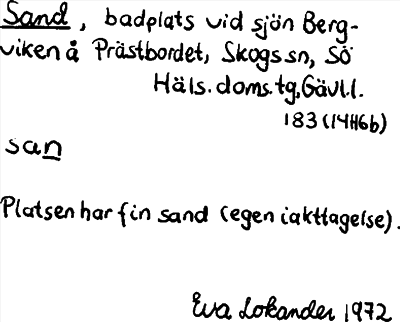 Sand, badplats vid sjön Berg-
viken å Prästbordet, Skogs sn, Sö
Häls. doms. tg, Gävl.l.
183 (14H6b)
san
Platsen har fin sand (egen iakttagelse).
Eva Lokander 1972